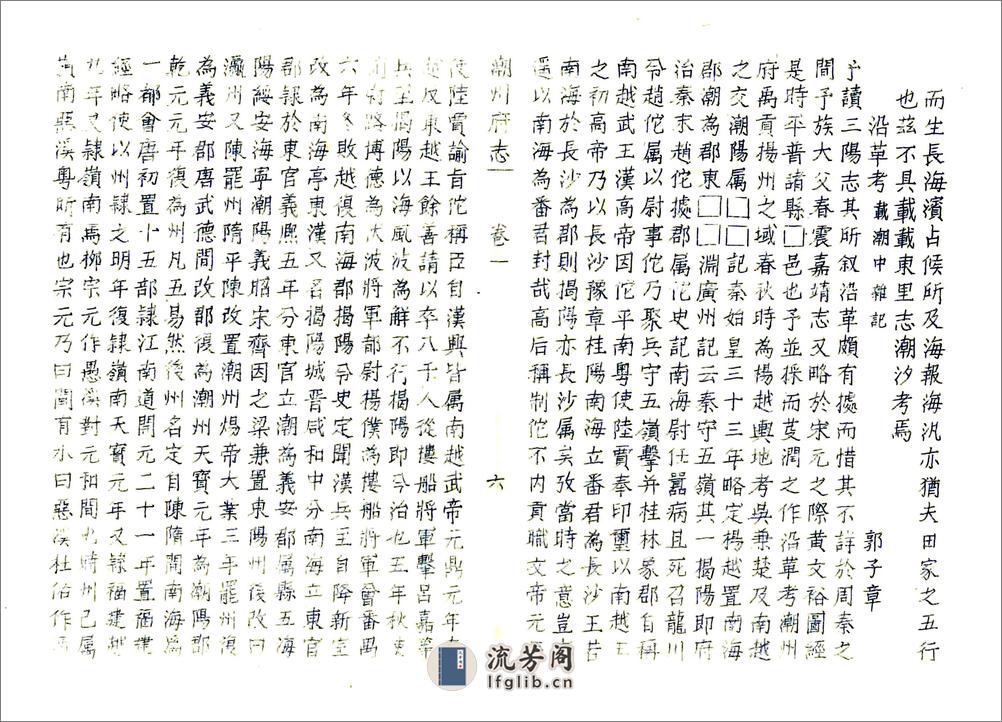 而生長海濱占候所及海報海汛亦猶夫田家之五行
也茲不具載載東里志潮汐考焉
沿革考 載潮中雜記 郭子章
予讀三陽志其所叙沿革頗有據而惜其不詳於周秦之
間予族大父春震嘉靖志又略於宋元之際黄文裕圖經
是時平普諸縣□邑也予並採而芟潤之作沿革考潮州
府禹貢楊州之域春秋時為楊越輿地考吳兼楚及南越
之交潮陽属□□記秦始皇三十三年略定楊越置南海
郡潮為郡東□□淵廣州記云秦守五嶺其一揭陽即府
治秦末趙佗據郡属佗史記南海尉任囂病且死召龍川
令趙佗属以尉事佗乃聚兵守五嶺擊并桂林象郡自稱
南越武王漢高帝因佗平南粵使陸賈奉印璽以南越王
之初高帝乃以長沙豫章桂陽南海立番君為長沙王若
南海於長沙為郡則揭陽亦長沙属矣攷當時之意豈
遥以南海為番君封哉高后稱制佗不内貢職文帝元
潮州府志 卷一 六
使陸賈諭旨佗稱臣自漢興皆属南越武帝元鼎元年
越反東越王餘善請以卒八千人從樓船將軍擊呂嘉等
兵至揭陽以海風波為解不行揭陽即今治也五年秋
路博德為伏波將軍都尉楊僕為樓船將軍會番禺
六年冬敗越復南海郡揭陽令史定聞漢兵至自降新室
改為南海亭東漢又名揭陽城晋咸和中分南海立東官
郡隷於東官義熙五年分東官立潮為義安郡属縣五海
陽綏安海寧潮陽義昭宋齊因之梁兼置東陽州後改曰
瀛州又陳罷州隋平陳改置潮州煬帝大業三年罷州復
為義安郡唐武德間改郡復為潮州天寳元年為潮陽郡
乾元元年復為州凡五易然後州名定自陳隋間南海為
一都會唐初置十五部隷江南道開元二十一年置福建
經略使以州隷之明年復隷嶺南天寳元年又隷福建越
九年又隷嶺南焉柳宗元作愚溪對元和間也時州已属
嶺南惡溪粵所有也宗元乃曰閩有水曰惡溪杜佑作
流芳阁
lfglib.cn